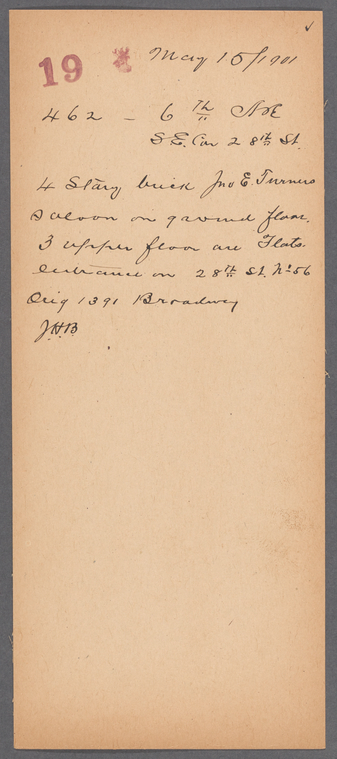 19 May 15/1901
462 - 6th Ave
S.E. Cor 28th St.
4 Story brick Jno E. Turners
Saloon on ground floor.
3 upper floor are Flats.
entrance on 28th St. No 56
Orig 1391 Broadway
J.H.B